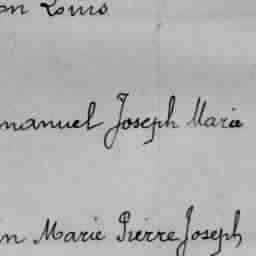 on Louis
manuel Joseph Marie
in Marie Pierre Joseph